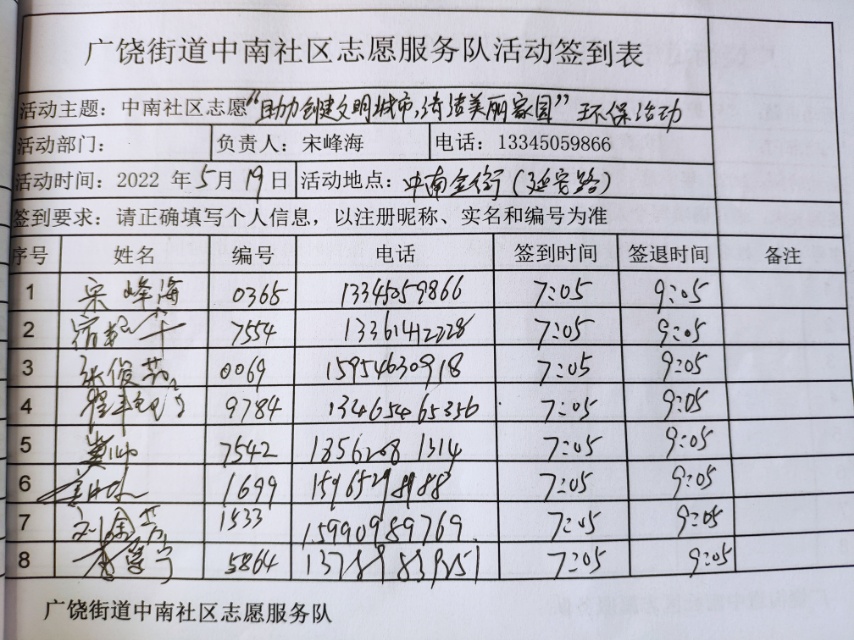 广饶街道中南社区志愿服务队活动签到表
活动主题：中南社区志愿“助力创建文明城市，清洁美丽家园”环保活动
活动部门： 负责人：宋峰海 电话：13345059866
活动时间：2022 年5月19日 活动地点：中南金街（延安路）
签到要求：请正确填写个人信息，以注册昵称、实名和编号为准
序号 姓名 编号 电话 签到时间 签退时间 备注
1 宋峰海 0365 13345059866 7:05 9:05
2 7554 13361412228 7:05 9:05
3 张俊芬 0069 15954630918 7:05 9:05
4 9784 13465465356 7:05 9:05
5 7542 1856208 1314 7:05 9:05
6 1699 7:05 9:05
7 1533 15990989769 7:05 9:05
8 5864 7:05 9:05
广饶街道中南社区志愿服务队